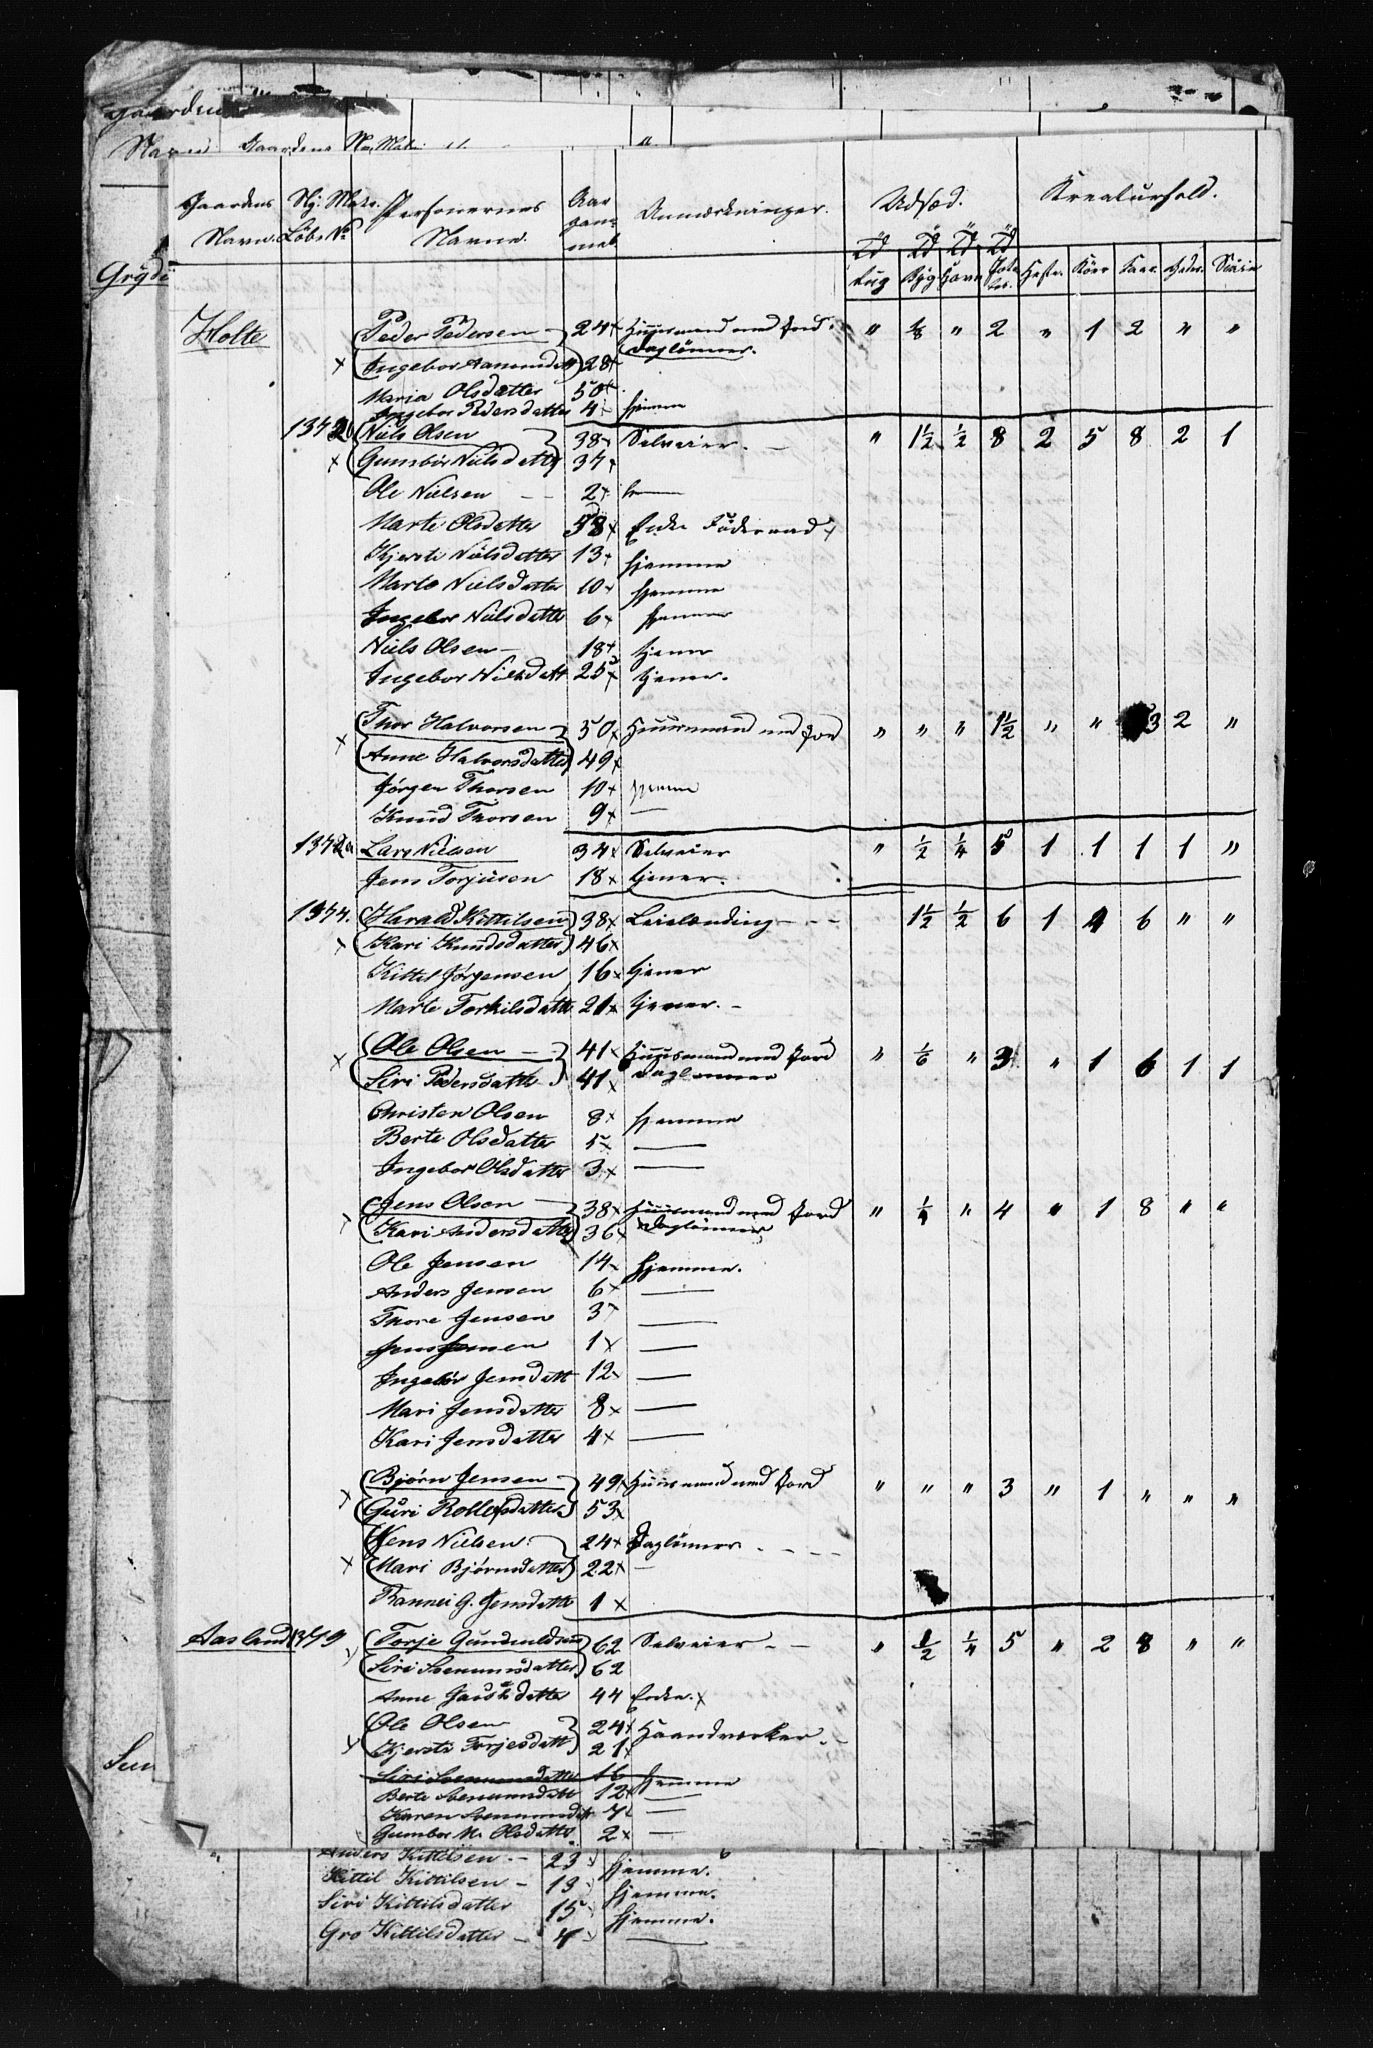 Gaardenes
Navn Gaardens
Gaardens Ny Matr. Personernes Aar gam- mel Anmærkninger. Udsæd. Kreaturhold.
Navn. Løbe No Navne.
Td Rug Td Byg Td Havre Td Pote- tes. Heste. Köer Faar. Geder. Sviin
Holte Peder Pedersen 24 Huusmand med Jord. " 1/8 " 2 " 1 2 " "
Daglönner.
Ingebor Aamundsdatt 28
Maria Olsdatter 50
Ingebor Pedersdatter 4 hjemme
1372b Niels Olsen 38 Selveier. " 1½ ½ 8 2 5 8 2 1
Gunnbör Nielsdatter 37
Ole Nielsen 2
Marte Olsdatter 58 Enke Föderaad
Kjersti Nielsdatter 13 hjemme
Marte Nielsdatter 10 hjemme
Ingebor Nielsdatter 6 hjemme
Niels Olsen 18 tjener
Ingebor Nielsdatt 25 tjener.
Thor Halvorsen 50 Huusmand med Jord " " " 1½ " " 3 2 "
Anne Halvorsdatter 49
Jørgen Thorsen 10 hjemme
Knud Thorsen 9 —
1372a Lars Nielsen 34 Selveier " ½ ¼ 5 1 1 1 1 "
Jens Torjusen 18 tjener.
1374. Harald Kittilsen 38 Leilænding 1½ ½ 6 1 4 6 " "
Kari Knudsdatter 46
Kittil Jørgensen 16 tjener
Marte Torkilsdatt 21 tjener.
Ole Olsen 41 Huusmand med Jord " 1/6 " 3 " 1 6 1 1
Siri Pedersdatter 41 Daglönner
Christen Olsen 8 hjemme
Berte Olsdatter 5 —
Ingebor Olsdatter 3 —
Jens Olsen 38 Huusmand med Jord " ¼ " 4 " 1 8 " "
Kari Andersdatter 36 Daglönner
Ole Jensen 14 hjemme.
Anders Jensen 6 —
Thore Jensen 3 —
Jens Jensen 1 —
Ingebör Jensdatt 12 —
Mari Jensdatter 8 —
Kari Jensdatter 4 —
Bjørn Jensen 49 Huusmand med Jord " " " 3 " 1 " " "
Guri Rollefsdatter 53
Jens Nielsen 24 Daglönner
Mari Bjørnsdatter 22 —
Rannei G. Jensdatte 1
Aasland 1379 Torje Gundmldsen 62 Selveier " ½ ¼ 5 " 2 8 " "
Siri Svenumsdatter 62
Anne datter 44 Enke.
Ole Olsen 24 Haandværker
Kjersti Torjesdatt 21
Siri Svenumsdatter 16 hjemme
Berte Svenumsdatt 12 —
Karen Svenumsdatt 7 —
Gumbor M. Olsdatter 2 —
Anders Kittilsen. 23 hjemme.
Kittil Kittilsen 19 hjemme.
Siri Kittilsdatter 15 hjemme.
Gro Kittilsdatter 4 —